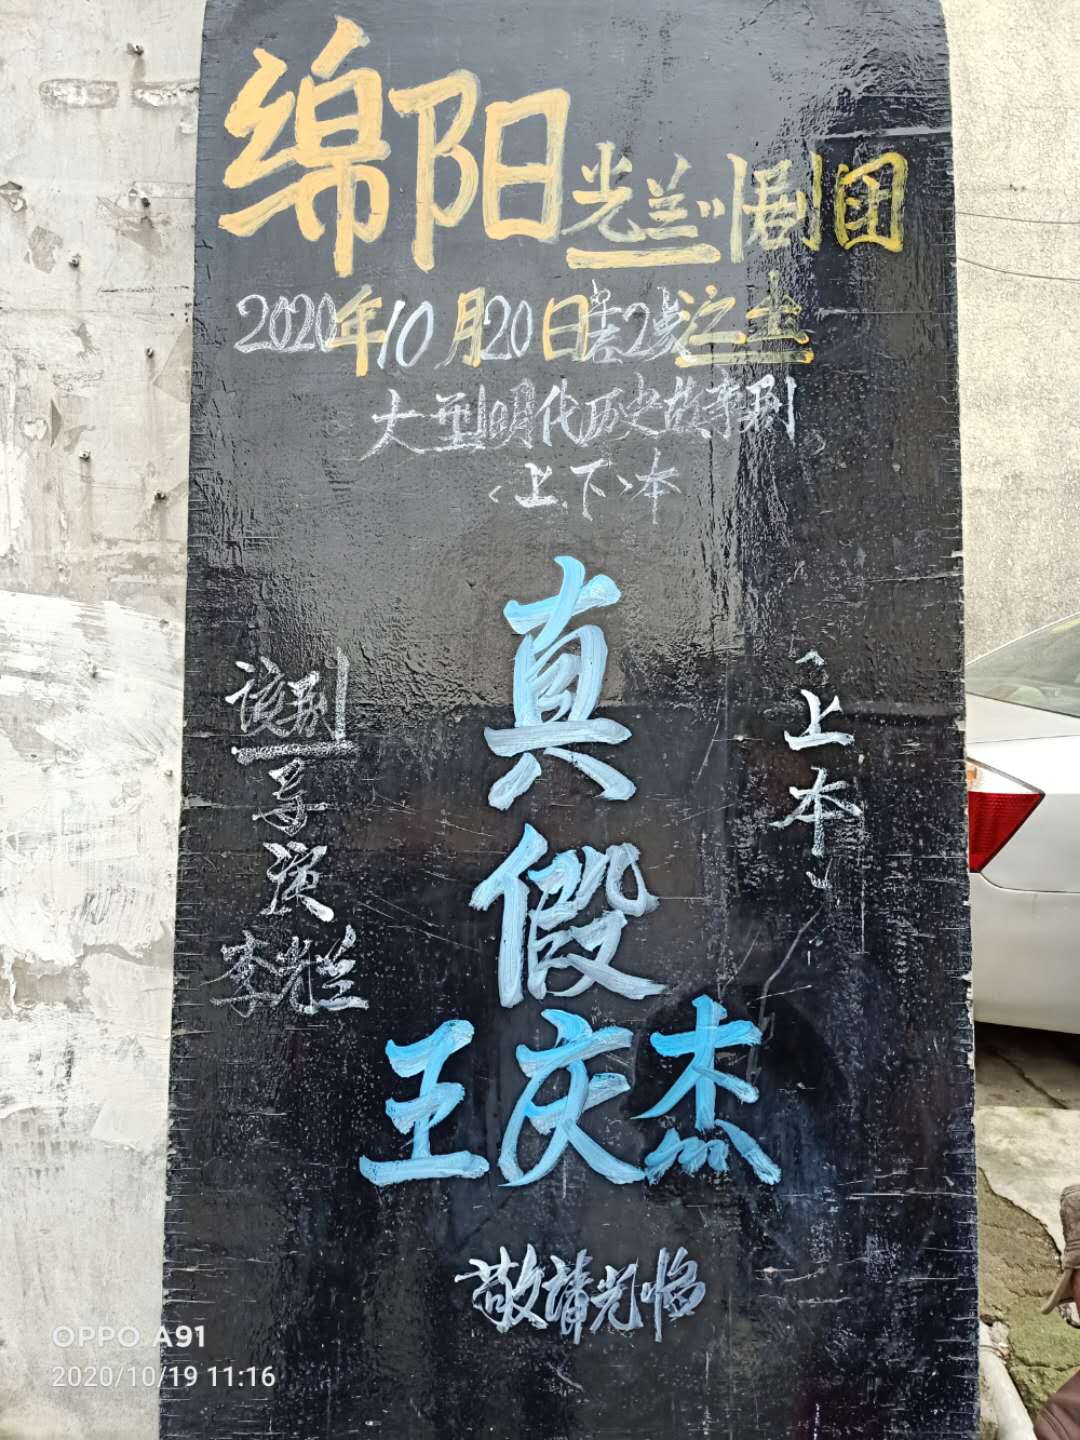 绵阳光兰川剧团
2020年10月20日午2点
大型明代历史故事剧
〈上、下〉本
真
假
王庆杰
〈上本〉
该剧
导演
李光兰
敬请光临
OPPO A91
2020/10/19 11:16